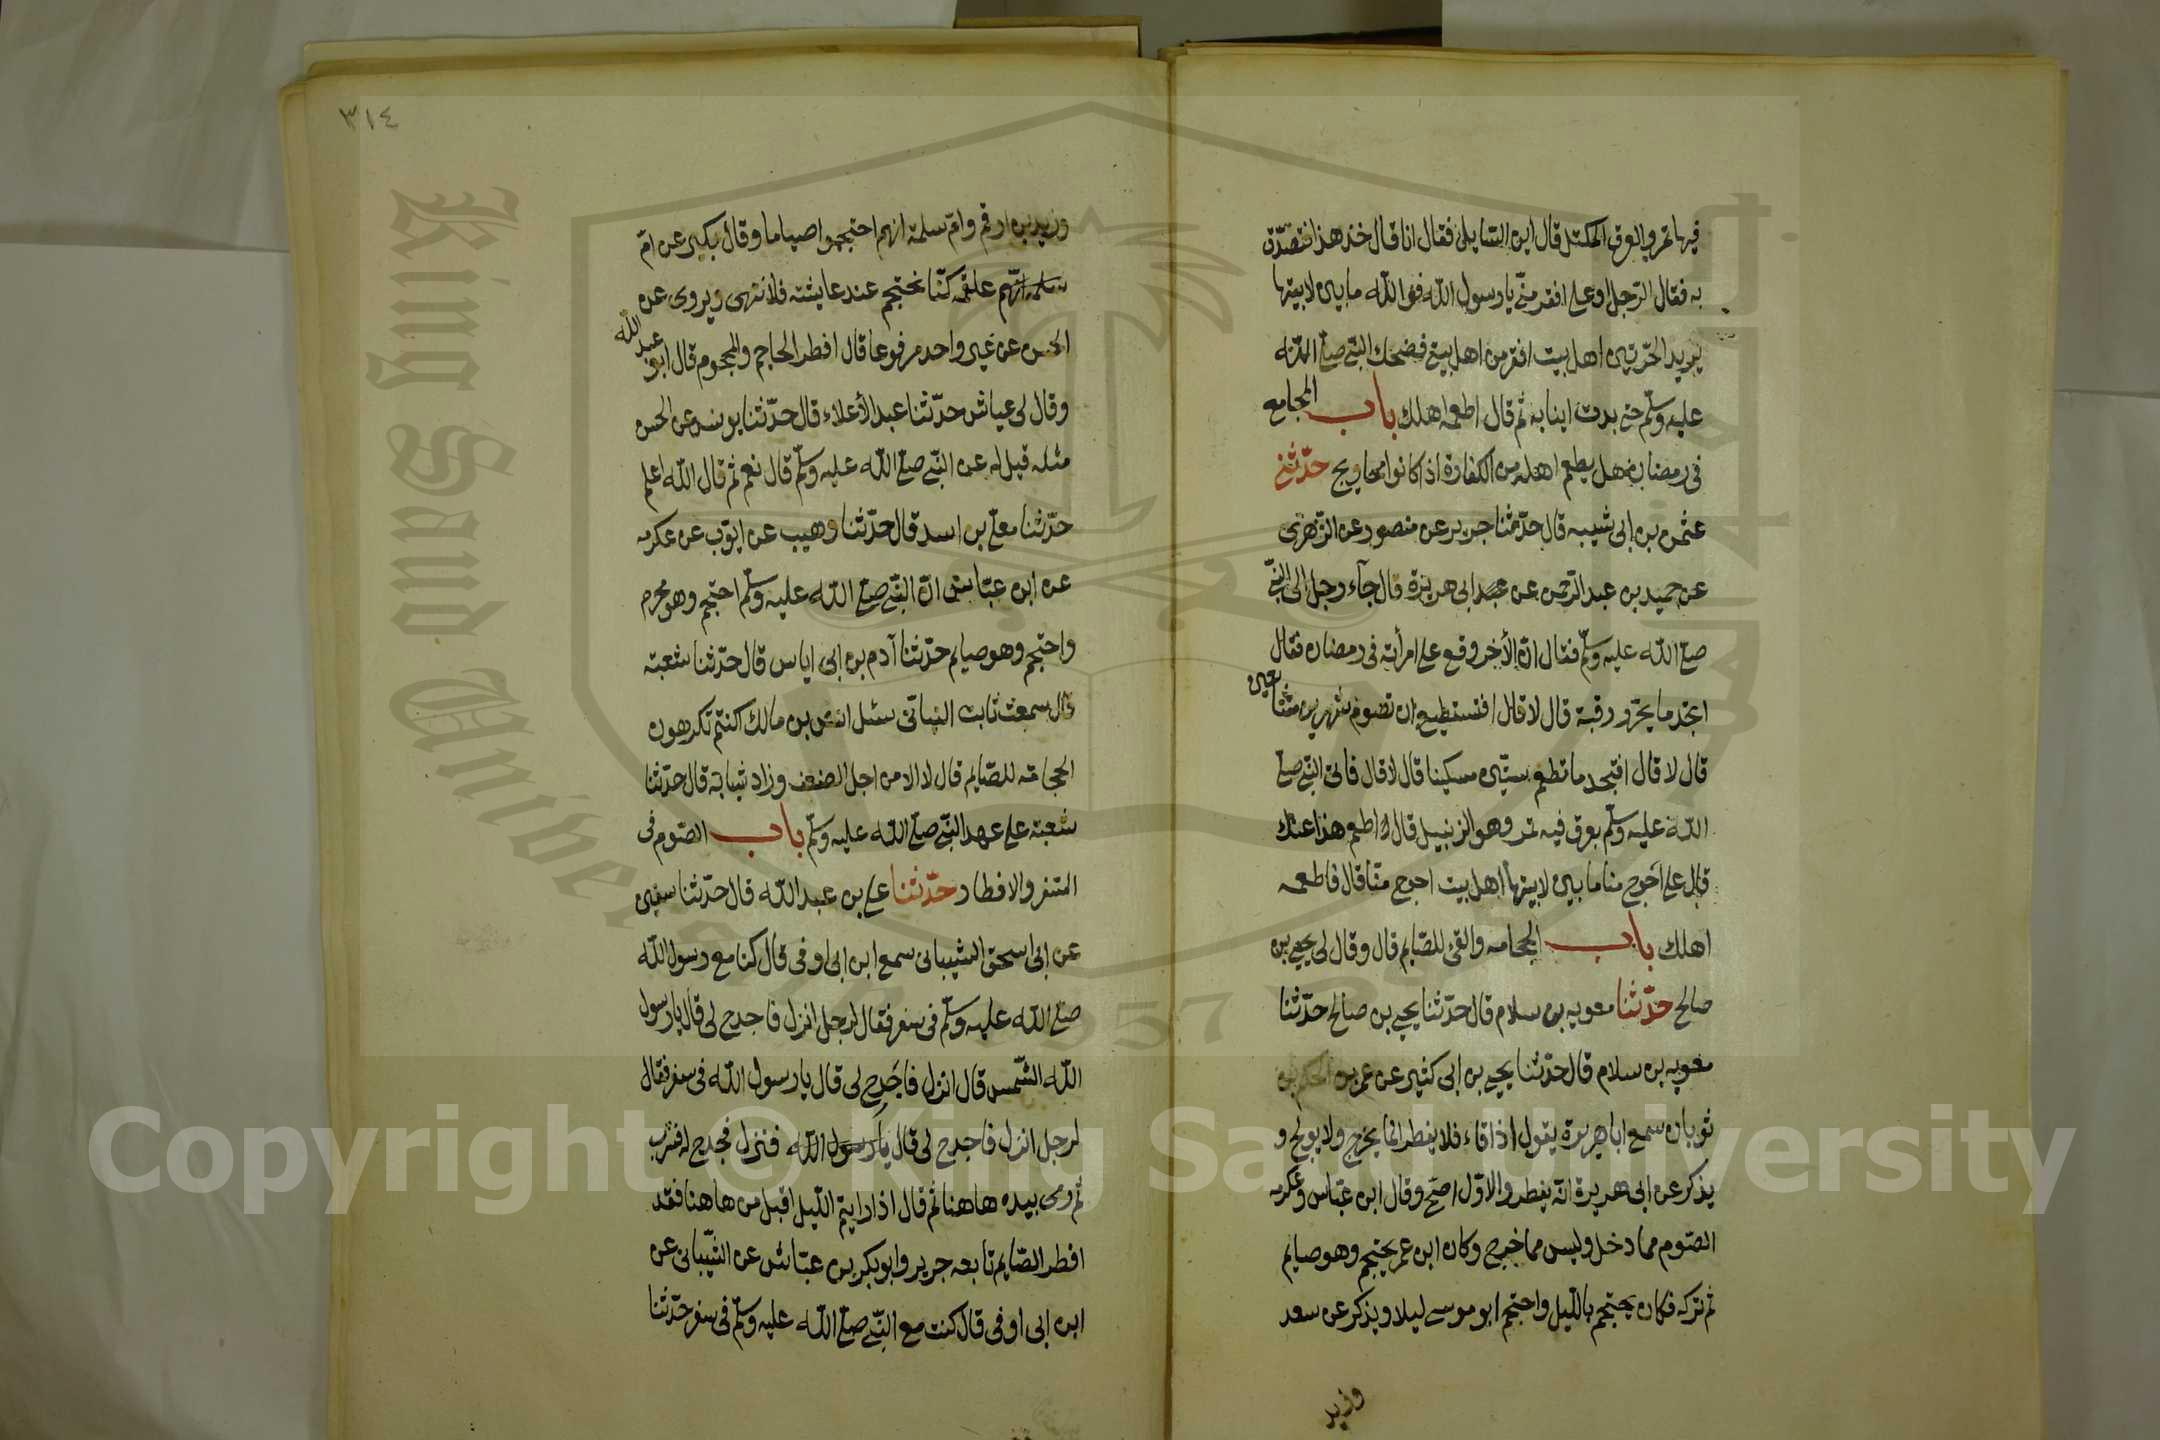 فيها تمر والعرق المكتل قال اين السايل فقال انا قال خذ هذا فتصدق
به فقال الرجل او على افقر مني يا رسول الله فوالله ما بين لابيتها
يريد الحرتين اهل بيت افقر من اهل بيتي فضحك النبي صلى الله
عليه وسلم حتى بدت انيابه ثم قال اطعمه اهلك باب المجامع
في رمضان هل يطعم اهله من الكفارة اذا كانوا محاويج حدثني
عثمن بن ابي شيبه قال حدثنا جرير عن منصور عن الزهري
عن حميد بن عبد الرحمن عن ابي هريرة قال جآء رجل الى النبي
صلى الله عليه وسلم فقال ان الأخر وقع على امرأته في رمضان فقال
اتجد ما يحرر رقبة قال لا قال افتستطيع ان تصوم شهرين متتابعين
قال لا قال افتجد ما تطعم ستين مسكينا قال لا قال فاتي النبي صلى
الله عليه وسلم بعرق فيه تمر وهو الزبيل قال اطعم هذا عنك
قال على احوج منا ما بين لابيتها اهل بيت احوج منا قال فاطعمه
اهلك باب الحجامه والقئ للصايم قال وقال لي يحيى بن
صالح حدثنا معويه بن سلام قال حدثنا يحيى بن صالح حدثنا
معويه بن سلام قال حدثنا يحيى بن ابي كثير عن عمر بن الحكم بن
ثوبان سمع ابا هريرة يقول اذا قاء فلا يفطر انما يخرج ولا يولج و
يذكر عن ابي هريرة انه يفطر والاول اصح وقال ابن عباس وعكرمه
الصوم مما دخل وليس مما خرج وكان ابن عمر يحتجم وهو صايم
ثم تركه فكان يحتجم بالليل واحتجم ابو موسى ليلا ويذكر عن سعد
وزيد
٣١٤
وزيد بن ارقم وام سلمة انهم احتجموا صياما وقال بكير عن ام
علقمه كنا نحتجم عند عايشة فلا ننهى ويروى عن
الحسن عن غير واحد مرفوعا قال افطر الحاجم والمحجوم قال ابو عبد الله
وقال لي عياش حدثنا عبد الأعلاء قال حدثنا يونس عن الحسن
مثله قيل له عن النبي صلى الله عليه وسلم قال نعم ثم قال الله اعلم
حدثنا معلى بن اسد قال حدثنا وهيب عن ايوب عن عكرمه
عن ابن عباس ان النبي صلى الله عليه وسلم احتجم وهو محرم
واحتجم وهو صايم حدثنا آدم بن ابي اياس قال حدثنا شعبة
قال سمعت ثابت البناني سئل انس بن مالك اكنتم تكرهون
الحجامة للصايم قال لا الا من اجل الضعف وزاد شبابة قال حدثنا
شعبة على عهد النبي صلى الله عليه وسلم باب الصوم في
السفر والافطار حدثنا علي بن عبد الله قال حدثنا سفين
عن ابي اسحق الشيباني سمع ابن ابي اوفى قال كنا مع رسول الله
صلى الله عليه وسلم في سفر فقال لرجل انزل فاجدح لي قال يا رسول
الله الشمس قال انزل فاجدح لي قال يا رسول الله في سفر فقال
لرجل انزل فاجدح لي قال يا رسول الله فنزل فجدح له فشرب
ثم رمى بيده هاهنا ثم قال اذا رايتم الليل اقبل من هاهنا فقد
افطر الصايم تابعه جرير وابو بكر بن عياش عن الشيباني عن
ابن ابي اوفى قال كنت مع النبي صلى الله عليه وسلم في سفر حدثنا
King Saud University
1957
Copyright © King Saud University